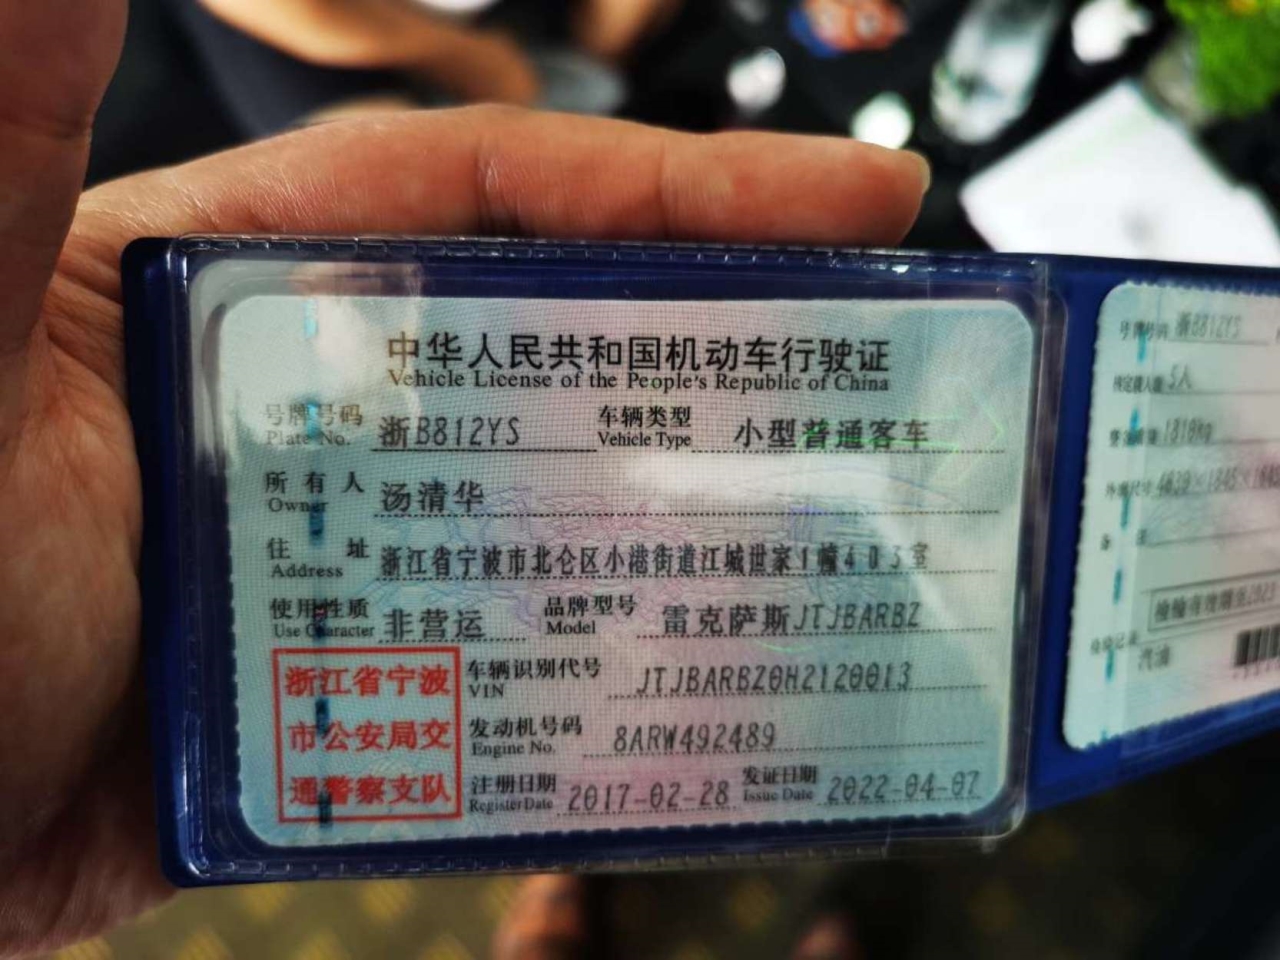 中华人民共和国机动车行驶证
Vehicle License of the People's Republic of China
号牌号码 浙B812YS 车辆类型 小型普通客车
Plate No. Vehicle Type
所有人 汤清华
Owner
住址 浙江省宁波市北仑区小港街道江城世家1幢403室
Address
使用性质 非营运 品牌型号 雷克萨斯JTJBARBZ
Use Character Model
浙江省宁波
市公安局交
通警察支队
车辆识别代号 JTJBARBZ0H2120013
VIN
发动机号码 8ARW492489
Engine No.
注册日期 2017-02-28 发证日期 2022-04-07
Register Date Issue Date
号牌号码 浙B812YS
5人
1810kg
外廓尺寸
汽油